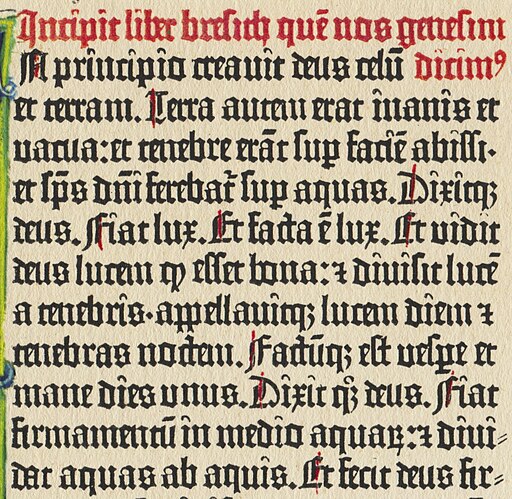 Incipit liber bresith quē nos genesim
A principio creavit deus celū dicimꝰ
et terram. Terra autem erat inanis et
vacua: et tenebre erāt sup faciē abissi.
et sp̄s dn̄i ferebat᷑ sup aquas. Dixitqꝫ
deus. Fiat lux. Et facta ē lux. Et vidit
deus lucem ꝙ esset bona: ⁊ divisit lucē
a tenebris. appellavitqꝫ lucem diem ⁊
tenebras noctem. Factūqꝫ est vesꝑe et
mane dies unus. Dixit qꝫ deus. Fiat
firmamentū in medio aquaꝝ: ⁊ divi-
dat aquas ab aquis. Et fecit deus fir-